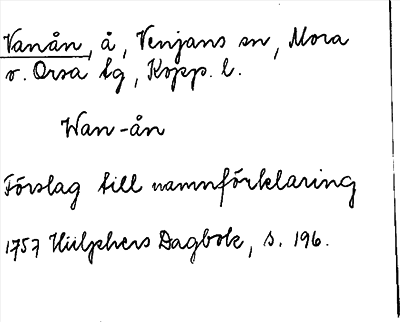 Vanån, å, Venjans sn, Mora
o. Orsa tg, Kopp. l.
Wan-ån
Förslag till namnförklaring
1757 Hülphers Dagbok, s. 196.